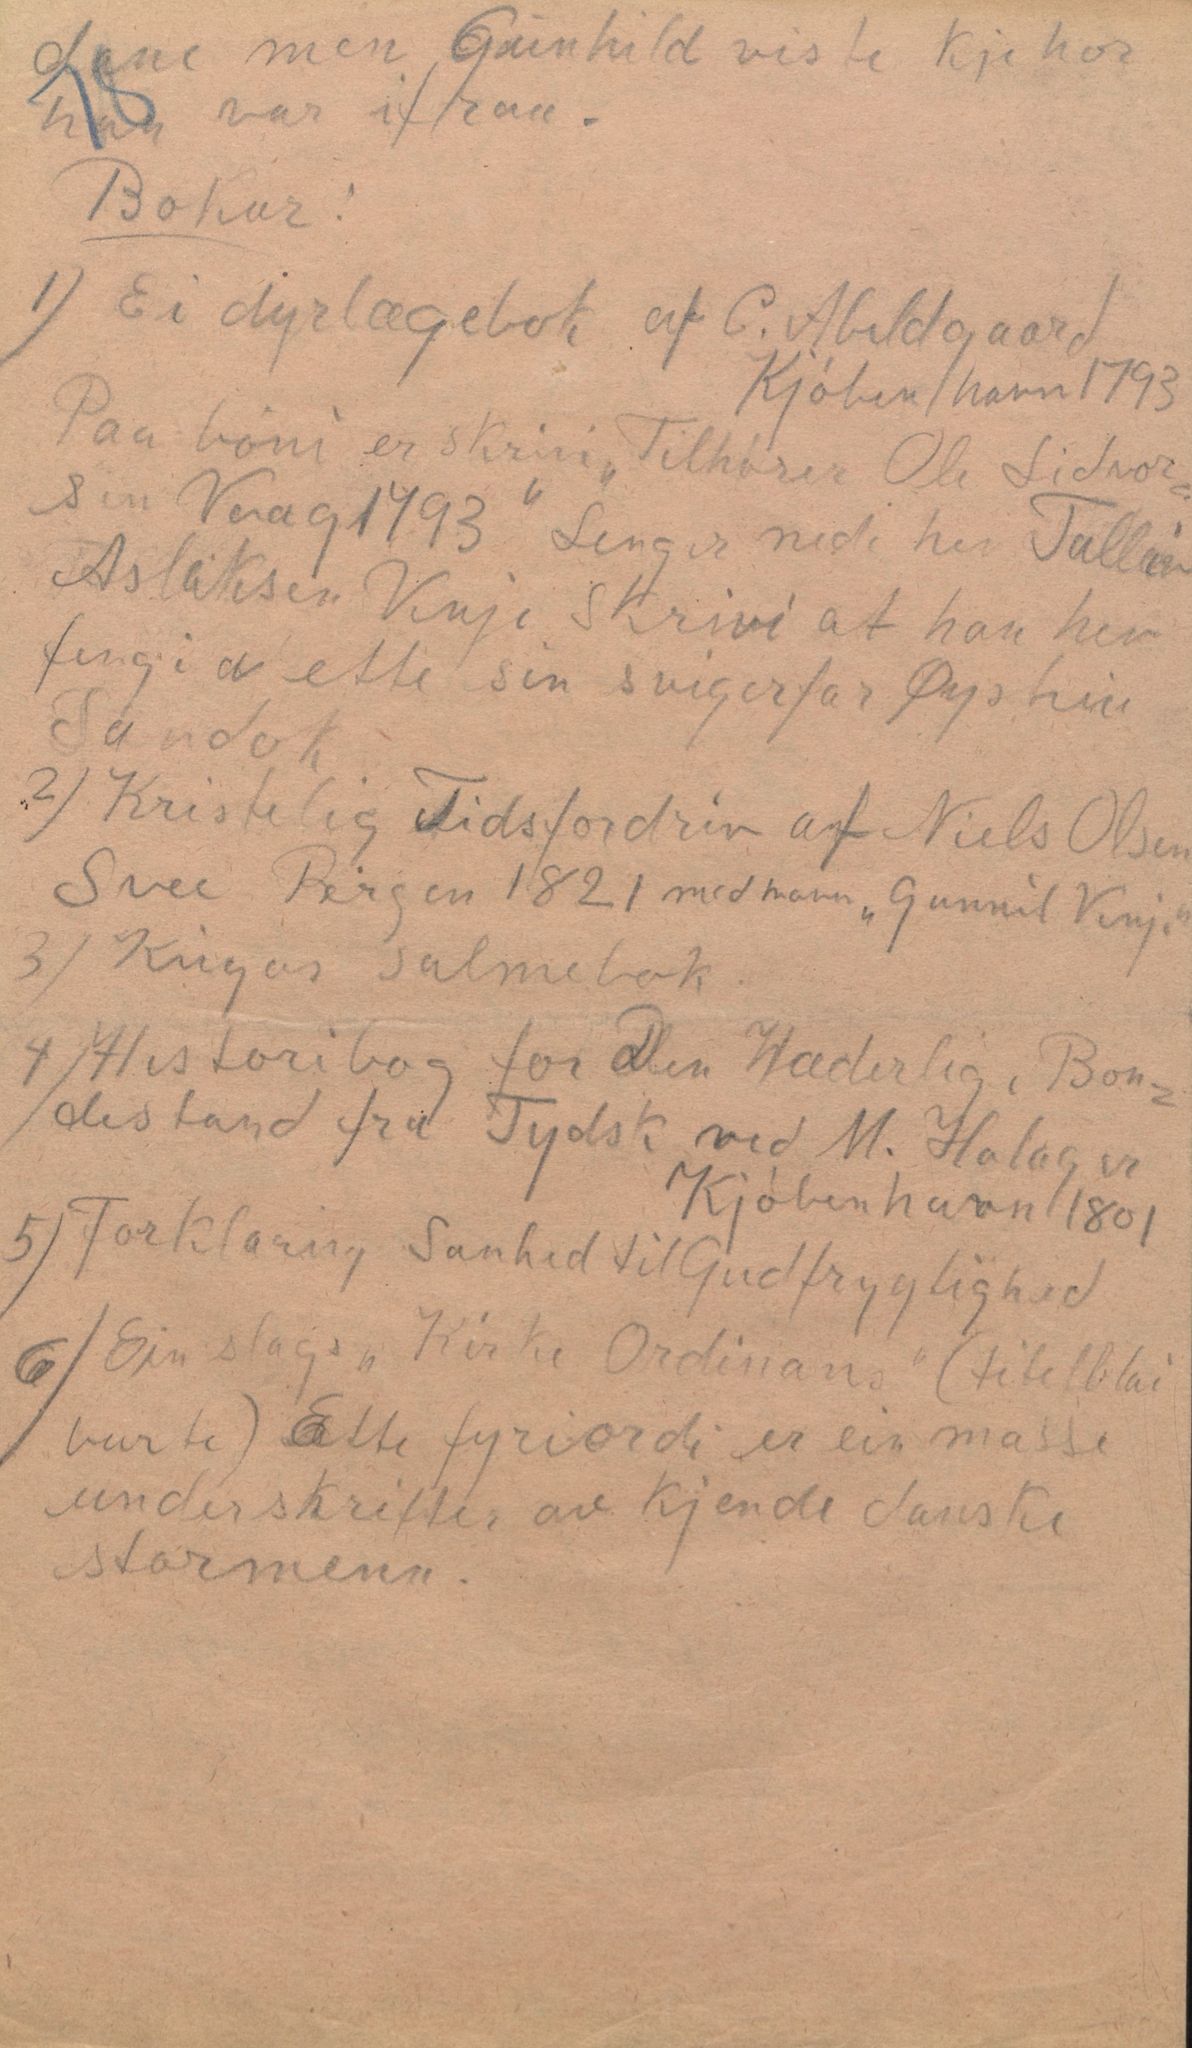 dane men Gunhild viste kje hor
78
han var ifraa.
Bokar:
1) Ei dyrlægebok af C. Abildgaard
Kjöbenhavn 1793
Paa böni er skrivi „Tilhörer Ole Lidvor=
sen Vraag 1793" Lenger nedi hev Talleiv
Aslaksen Vinje skrivi at han hev
fengi ette sin svigerfar Øystein
Sandok
2) Kristelig Tidsfordriv af Niels Olsen
Svee Bergen 1821 med navn „Gunnil Vinje"
3) Kingos salmebok.
4) Historibog for Den Hæderlige Bon=
destand fra Tydsk ved M. Halager
Kjöbenhavn 1801
5) Forklaring Sanhed til Gudfrygtighed
6) Ein slags „Kirke Ordinans" (titelblai
burte) Ette fyriordi er ein masse
underskrifter av kjende danske
stormenn.